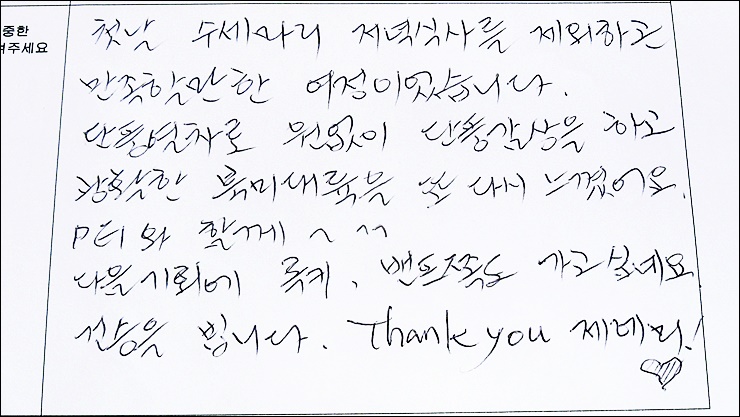 중한
겨주세요
첫날 수세마리 저녁식사를 제외하고
만족할만한 여정이었습니다.
단풍열차로 원없이 단풍감상을 하고
광활한 북미대륙을 또 다시 느꼈어요.
PEI와 함께 ~ ^^
다음기회에 록키, 밴프쪽도 가고싶네요
건승을 빕니다. Thank you 제레미!